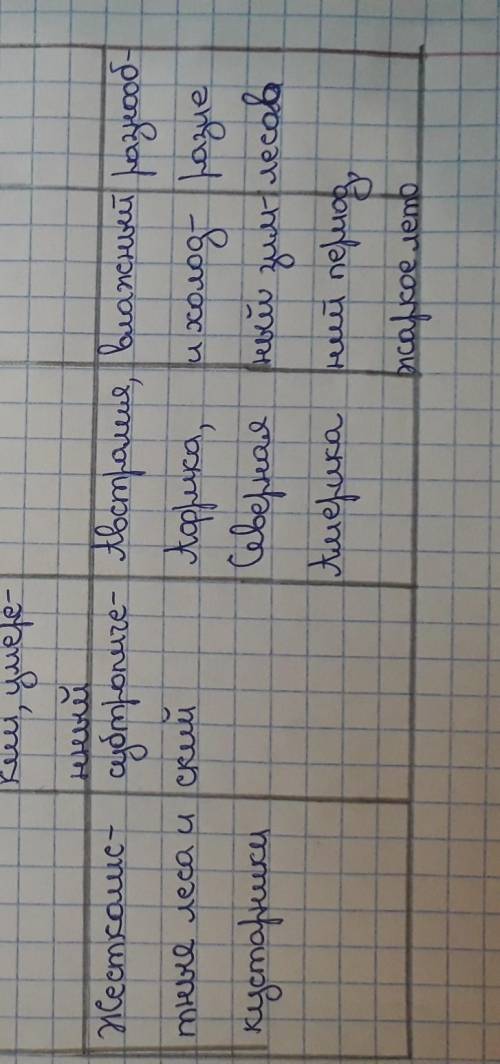 кий, умере-
нный
Жестколис-
тные леса и
кустарники
субтропиче-
ский
Австралия,
Африка,
Северная
Америка
влажный
и холод-
ный зим-
ний период,
жаркое лето
разнооб-
разие
лесов